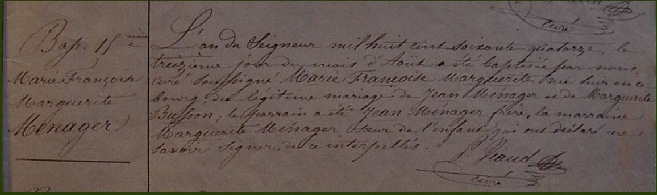 curé
Bap. 15ième
Marie Françoise
Marguerite
Ménager
L'an du Seigneur mil huit cent soixante quatorze, le
treizième jour du mois d'Août a été baptisée par nous
curé soussigné Marie Françoise Marguerite née hier en ce
bourg du légitime mariage de Jean Ménager et de Marguerite
Buisson, le parrain a été Jean Ménager frère, la marraine
Marguerite Ménager sœur de l'enfant, qui ont déclaré ne
savoir signer, de ce interpellés.
curé